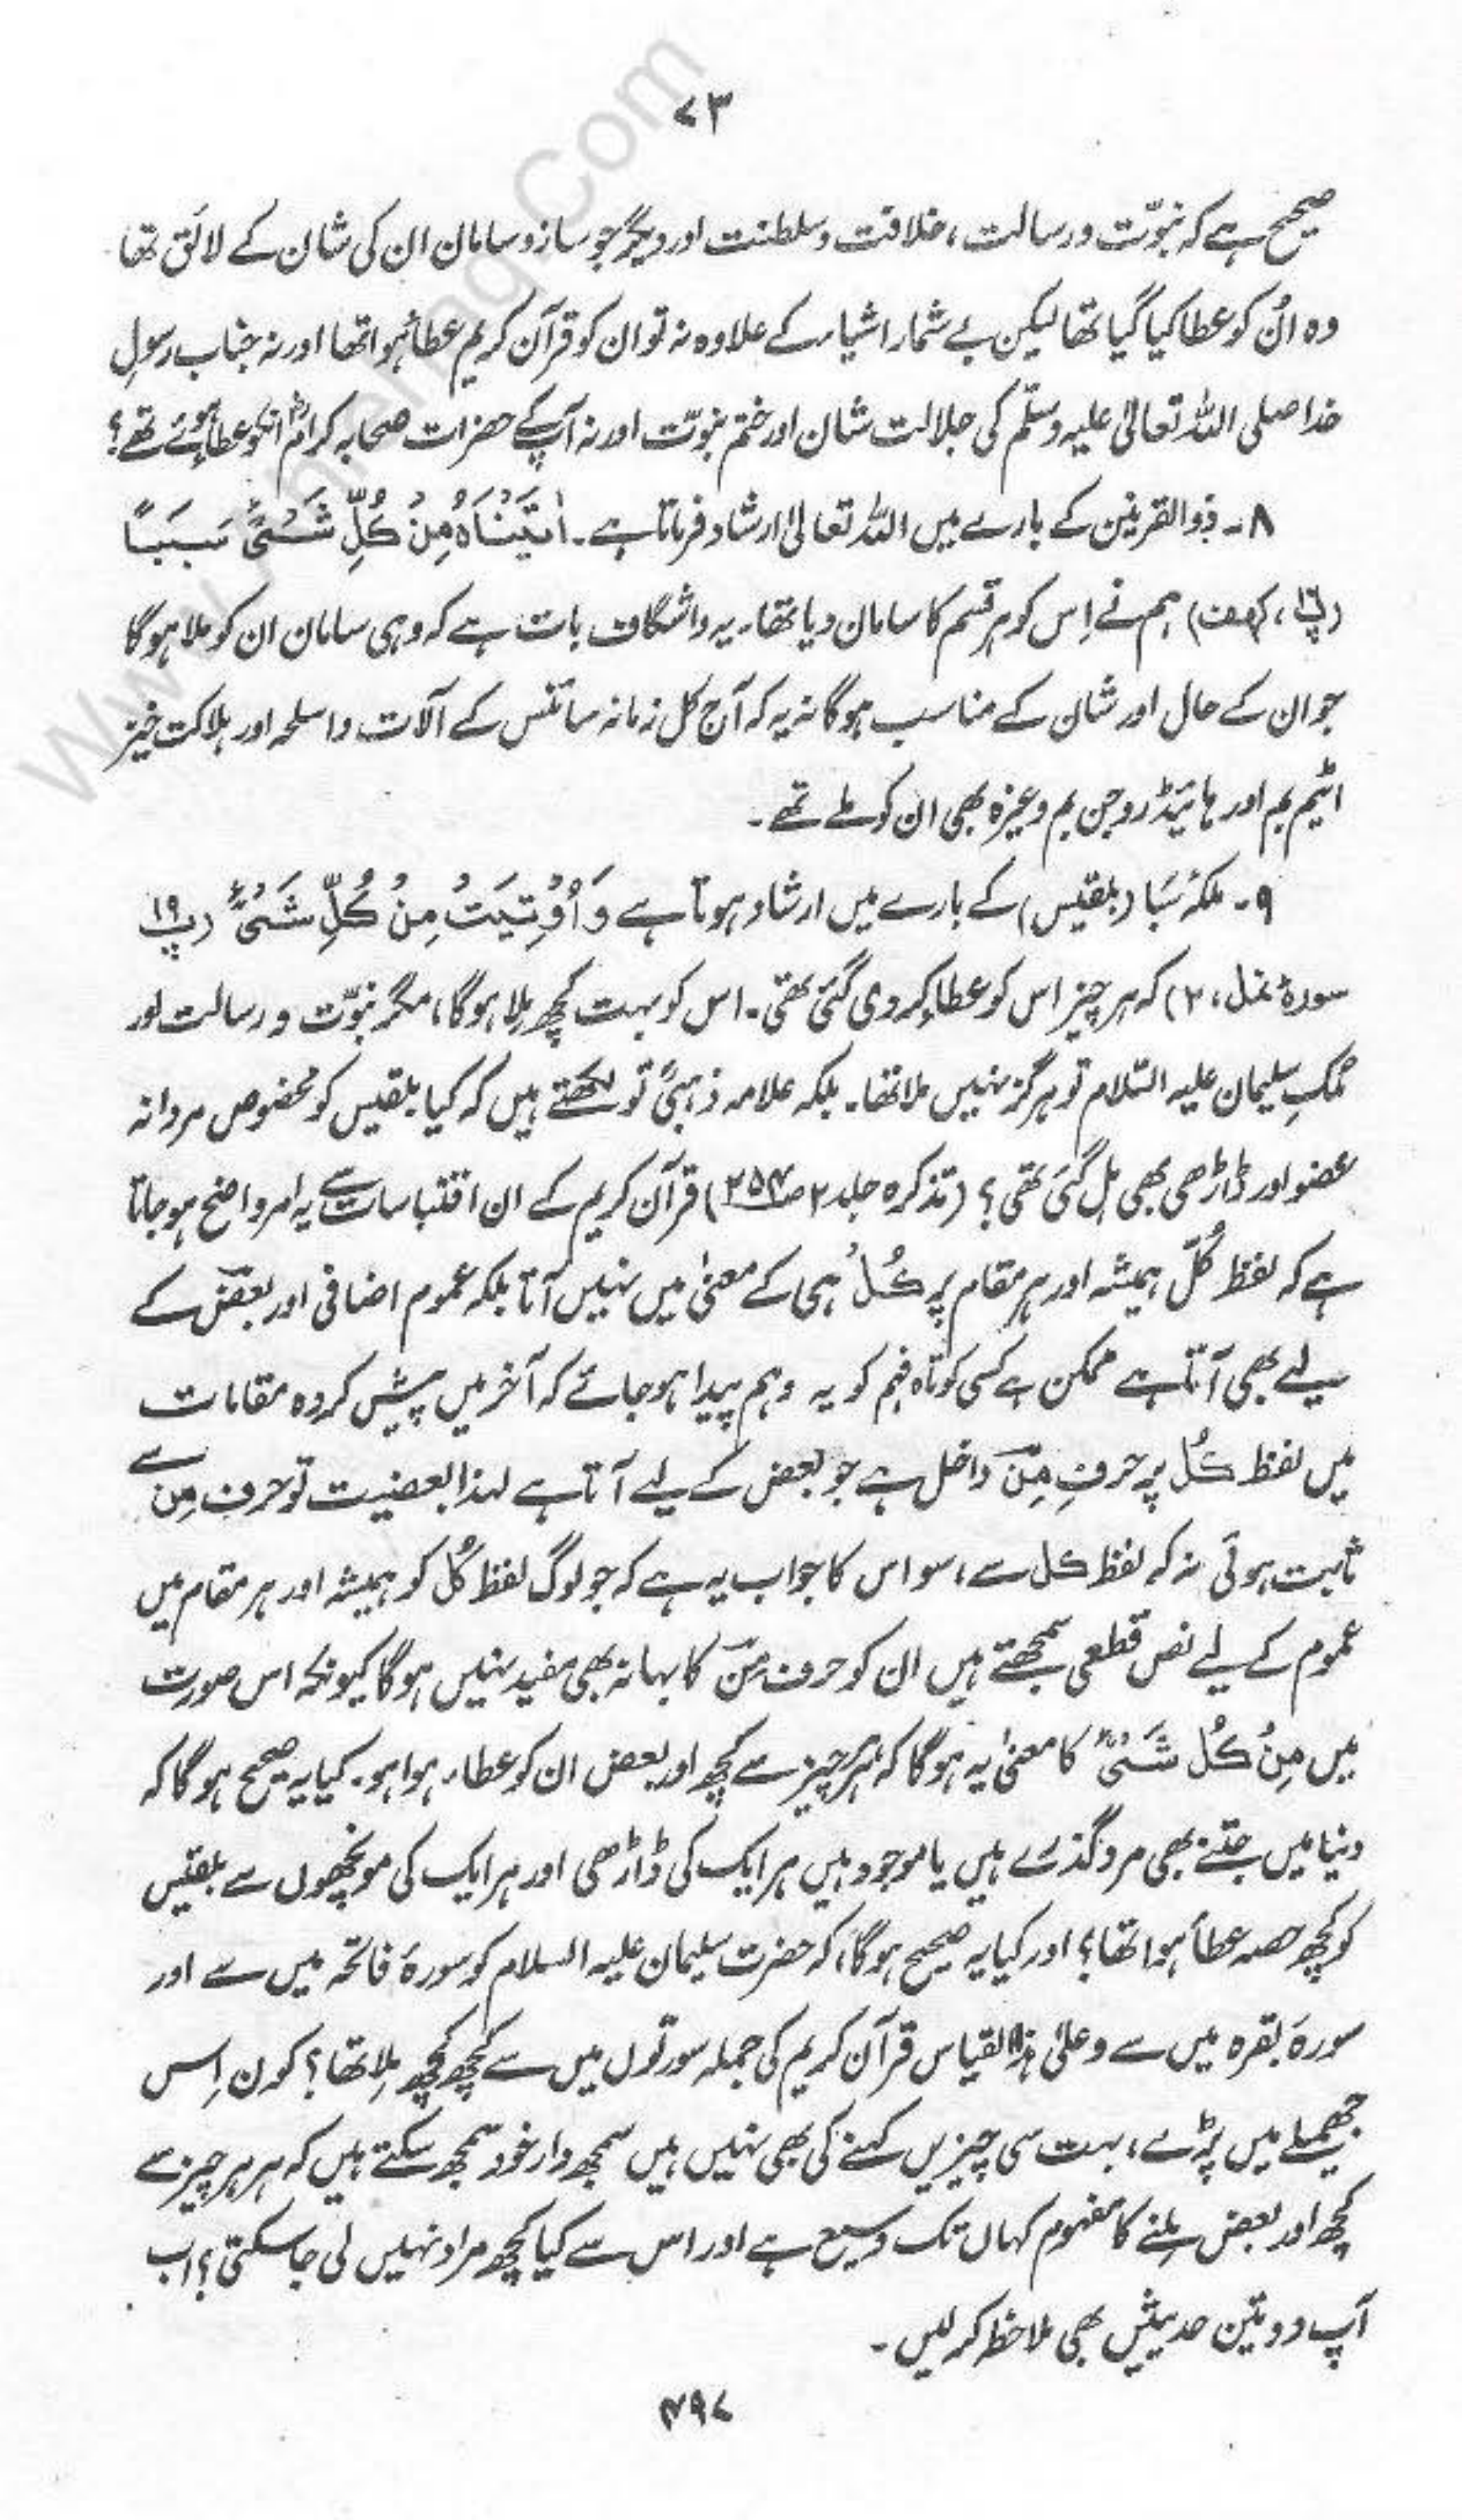 ۷۳
صحیح ہے کہ نبوّت و رسالت، خلافت و سلطنت اور دیگر جو ساز و سامان ان کی شان کے لائق تھا
وہ اُن کو عطا کیا گیا تھا لیکن بے شمار اشیاء کے علاوہ نہ تو ان کو قرآن کریم عطاء ہوا تھا اور نہ جناب رسولِ
خدا صلی اللہ تعالیٰ علیہ وسلّم کی جلالت شان اور ختم نبوّت اور نہ آپ کے حضرات صحابہ کرامؓ انکو عطا ہوئے تھے؟
۸۔ ذوالقرنین کے بارے میں اللہ تعالیٰ ارشاد فرماتا ہے۔ اٰتَیْنَاہُ مِنْ کُلِّ شَیْءٍ سَبَبًا
(پ۱۶، کہف) ہم نے اِس کو ہر قسم کا سامان دیا تھا۔ یہ واشگاف بات ہے کہ وہی سامان ان کو ملا ہوگا
جو ان کے حال اور شان کے مناسب ہوگا نہ یہ کہ آج کل زمانہ سائنس کے آلات و اسلحہ اور ہلاکت خیز
اٹیم بم اور ہائیڈروجن بم وغیرہ بھی ان کو ملے تھے۔
۹۔ ملکۂ سَبَا (بلقیس) کے بارے میں ارشاد ہوتا ہے وَ اُوْتِیَتْ مِنْ کُلِّ شَیْءٍ (پ۱۹
سورۂ نمل، ۲) کہ ہر چیز اس کو عطاء کر دی گئی تھی۔ اس کو بہت کچھ مِلا ہوگا، مگر نبوّت و رسالت اور
مُلکِ سلیمان علیہ السّلام تو ہرگز نہیں ملا تھا۔ بلکہ علامہ ذہبیؒ تو لکھتے ہیں کہ کیا بلقیس کو مخصوص مردانہ
عضو اور ڈاڑھی بھی مِل گئی تھی؟ (تذکرہ جلد ۲ ص۲۵۴) قرآن کریم کے ان اقتباسات سے یہ امر واضح ہو جاتا
ہے کہ لفظ کُلّ ہمیشہ اور ہر مقام پر کُلُّ ہی کے معنیٰ میں نہیں آتا بلکہ عموم اضافی اور بعض کے
لیے بھی آتا ہے ممکن ہے کسی کوتاہ فہم کو یہ وہم پیدا ہو جائے کہ آخر میں پیش کردہ مقامات
میں لفظ کُلُّ پر حرفِ مِنْ داخل ہے جو بعض کے لیے آتا ہے لہذا بعضیت تو حرف مِن سے
ثابت ہوئی نہ کہ لفظ کل سے، سو اس کا جواب یہ ہے کہ جو لوگ لفظ کُل کو ہمیشہ اور ہر مقام میں
عموم کے لیے نص قطعی سمجھتے ہیں ان کو حرف مِنْ کا بہانہ بھی مفید نہیں ہوگا کیونکہ اس صورت
میں مِنْ کُلِّ شَیْءٍ کا معنیٰ یہ ہوگا کہ ہر ہر چیز سے کچھ اور بعض ان کو عطاء ہوا ہو۔ کیا یہ صحیح ہوگا کہ
دنیا میں جتنے بھی مرد گذرے ہیں یا موجود ہیں ہر ایک کی ڈاڑھی اور ہر ایک کی مونچھوں سے بلقیس
کو کچھ حصہ عطأ ہوا تھا؟ اور کیا یہ صحیح ہوگا، کہ حضرت سلیمان علیہ السلام کو سورۂ فاتحہ میں سے اور
سورۂ بقرہ میں سے وعلیٰ ہٰذا القیاس قرآن کریم کی جملہ سورتوں میں سے کچھ کچھ مِلا تھا؟ کون اِس
جھمیلے میں پڑے، بہت سی چیزیں کہنے کی بھی نہیں ہیں سمجھ دار خود سمجھ سکتے ہیں کہ ہر ہر چیز سے
کچھ اور بعض مِلنے کا مفہوم کہاں تک وسیع ہے اور اس سے کیا کچھ مراد نہیں لی جا سکتی؟ اب
آپ دو تین حدیثیں بھی ملاحظہ کر لیں۔
۴۹۷